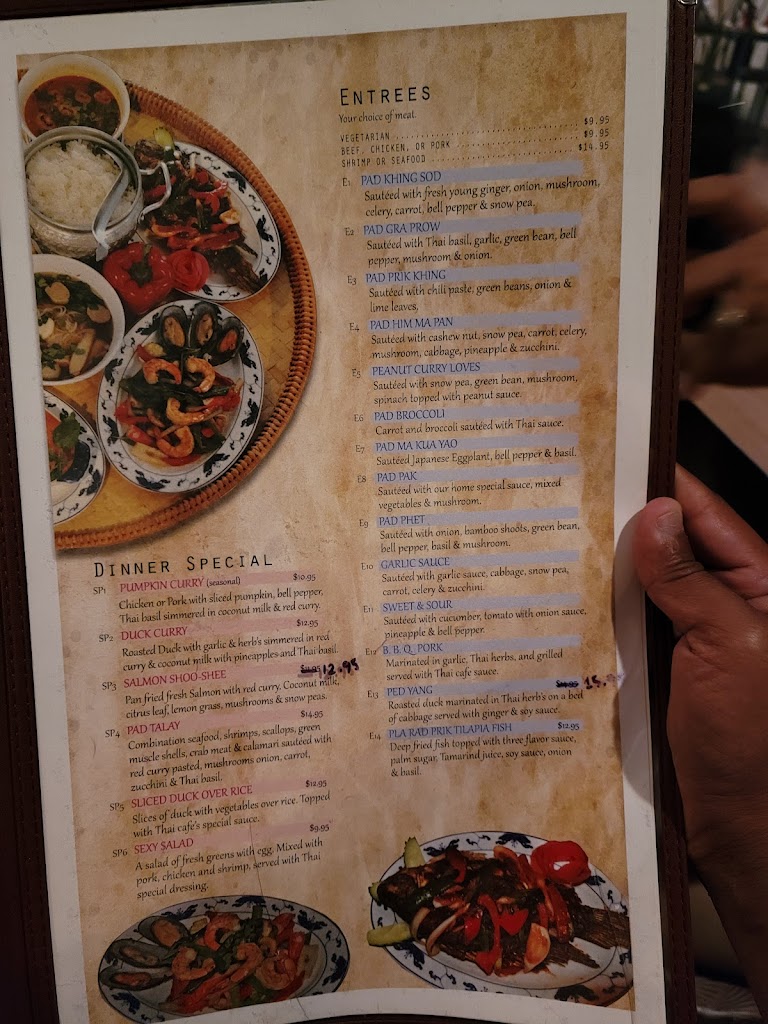 ENTREES
Your choice of meat.
VEGETARIAN ........ $9.95
BEEF, CHICKEN, OR PORK ........ $9.95
SHRIMP OR SEAFOOD ........ $14.95
E1 PAD KHING SOD
Sautéed with fresh young ginger, onion, mushroom,
celery, carrot, bell pepper & snow pea.
E2 PAD GRA PROW
Sautéed with Thai basil, garlic, green bean, bell
pepper, mushroom & onion.
E3 PAD PRIK KHING
Sautéed with chili paste, green beans, onion &
lime leaves,
E4 PAD HIM MA PAN
Sautéed with cashew nut, snow pea, carrot, celery,
mushroom, cabbage, pineapple & zucchini.
E5 PEANUT CURRY LOVES
Sautéed with snow pea, green bean, mushroom,
spinach topped with peanut sauce.
E6 PAD BROCCOLI
Carrot and broccoli sautéed with Thai sauce.
E7 PAD MA KUA YAO
Sautéed Japanese Eggplant, bell pepper & basil.
E8 PAD PAK
Sautéed with our home special sauce, mixed
vegetables & mushroom.
E9 PAD PHET
Sautéed with onion, bamboo shoots, green bean,
bell pepper, basil & mushroom.
E10 GARLIC SAUCE
Sautéed with garlic sauce, cabbage, snow pea,
carrot, celery & zucchini.
E11 SWEET & SOUR
Sautéed with cucumber, tomato with onion sauce,
pineapple & bell pepper.
E12 B. B. Q. PORK
Marinated in garlic, Thai herbs, and grilled
served with Thai cafe sauce.
E13 PED YANG
Roasted duck marinated in Thai herb's on a bed
of cabbage served with ginger & soy sauce.
E14 PLA RAD PRIK TILAPIA FISH $12.95
Deep fried fish topped with three flavor sauce,
palm sugar, Tamarind juice, soy sauce, onion
& basil.
DINNER SPECIAL
SP1 PUMPKIN CURRY (seasonal) $10.95
Chicken or Pork with sliced pumpkin, bell pepper,
Thai basil simmered in coconut milk & red curry.
SP2 DUCK CURRY $12.95
Roasted Duck with garlic & herb's simmered in red
curry & coconut milk with pineapples and Thai basil.
SP3 SALMON SHOO-SHEE 12.95
Pan fried fresh Salmon with red curry. Coconut milk,
citrus leaf, lemon grass, mushrooms & snow peas.
SP4 PAD TALAY $14.95
Combination seafood, shrimps, scallops, green
muscle shells, crab meat & calamari sautéed with
red curry pasted, mushrooms onion, carrot,
zucchini & Thai basil.
SP5 SLICED DUCK OVER RICE $12.95
Slices of duck with vegetables over rice. Topped
with Thai cafe's special sauce.
SP6 SEXY SALAD $9.95
A salad of fresh greens with egg. Mixed with
pork, chicken and shrimp, served with Thai
special dressing.